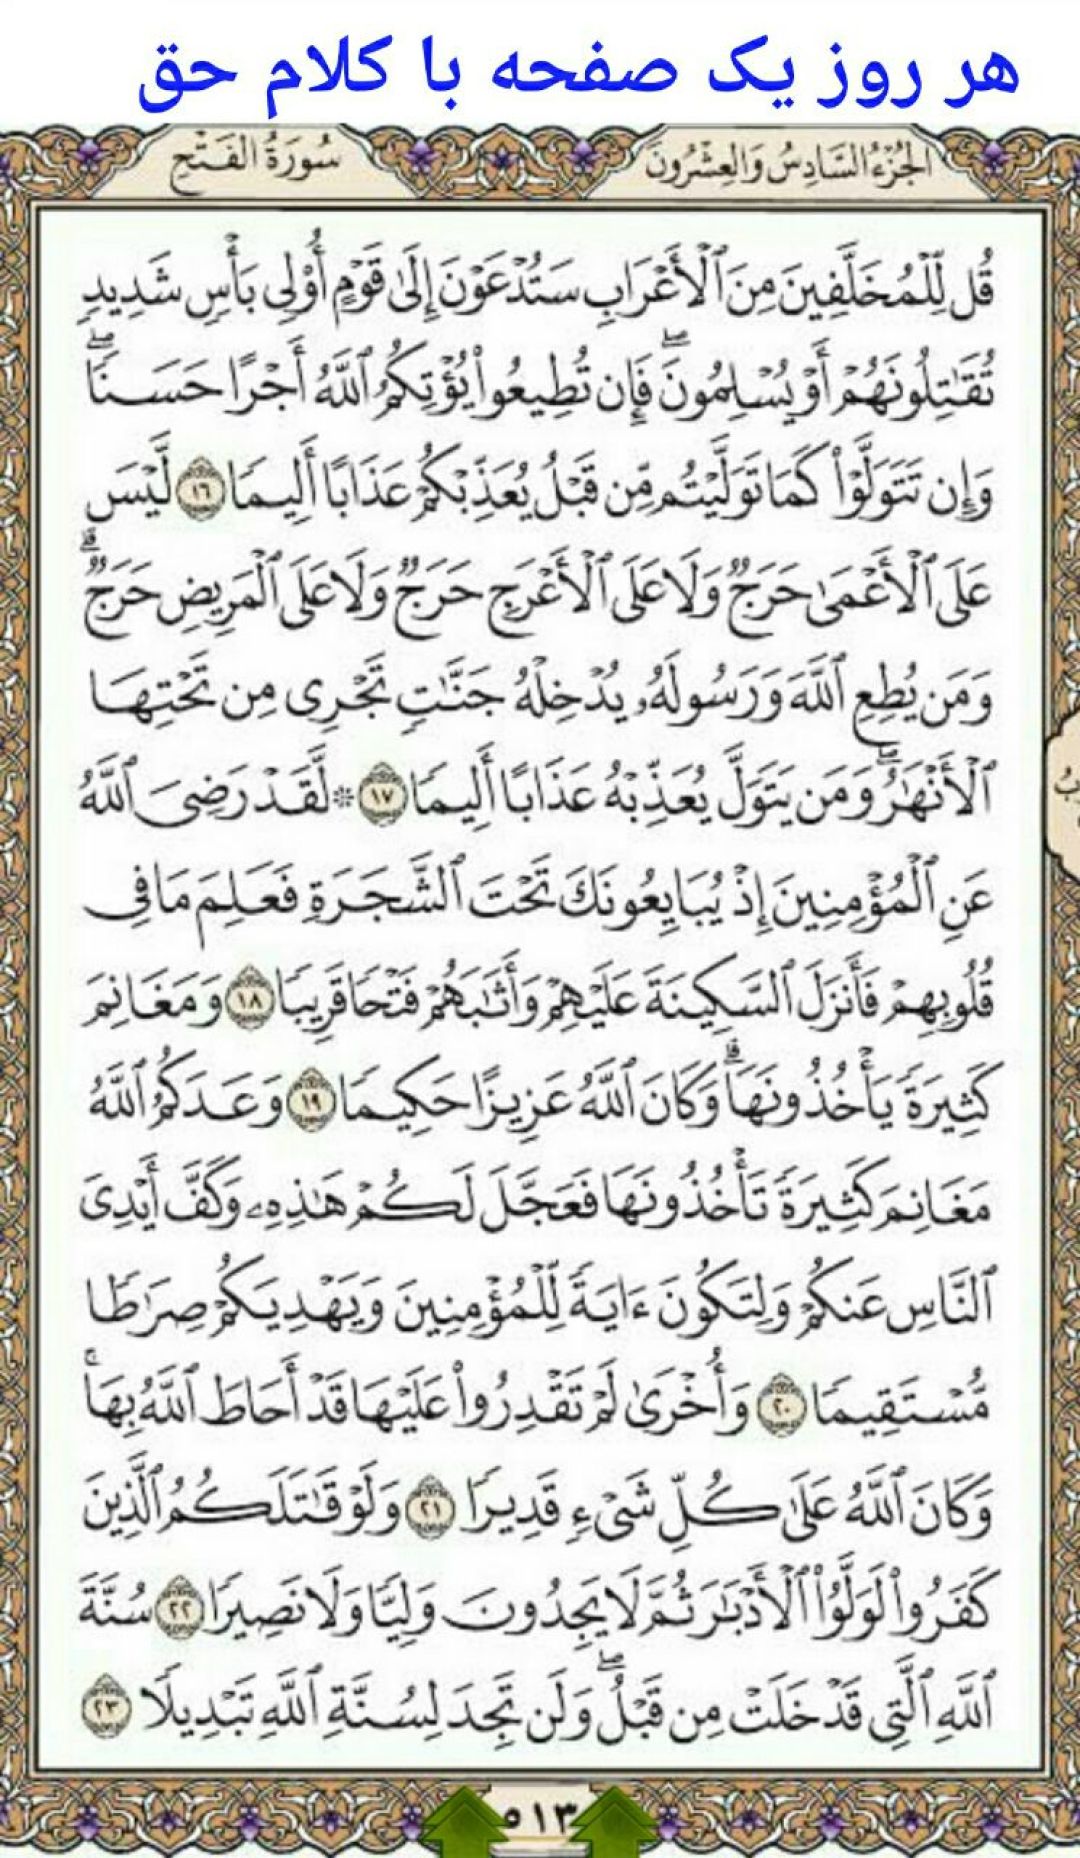 هر روز یک صفحه با کلام حق
الجُزْءُ السَّادِسُ وَالعِشْرُونَ
سُورَةُ الفَتْحِ
قُل لِّلْمُخَلَّفِينَ مِنَ ٱلْأَعْرَابِ سَتُدْعَوْنَ إِلَىٰ قَوْمٍ أُوْلِى بَأْسٍ شَدِيدٍ
تُقَٰتِلُونَهُمْ أَوْ يُسْلِمُونَۖ فَإِن تُطِيعُواْ يُؤْتِكُمُ ٱللَّهُ أَجْرًا حَسَنًاۖ
وَإِن تَتَوَلَّوْاْ كَمَا تَوَلَّيْتُم مِّن قَبْلُ يُعَذِّبْكُمْ عَذَابًا أَلِيمًا ١٦ لَّيْسَ
عَلَى ٱلْأَعْمَىٰ حَرَجٌ وَلَا عَلَى ٱلْأَعْرَجِ حَرَجٌ وَلَا عَلَى ٱلْمَرِيضِ حَرَجٌۗ
وَمَن يُطِعِ ٱللَّهَ وَرَسُولَهُۥ يُدْخِلْهُ جَنَّٰتٍ تَجْرِى مِن تَحْتِهَا
ٱلْأَنْهَٰرُۖ وَمَن يَتَوَلَّ يُعَذِّبْهُ عَذَابًا أَلِيمًا ١٧ ۞ لَّقَدْ رَضِىَ ٱللَّهُ
عَنِ ٱلْمُؤْمِنِينَ إِذْ يُبَايِعُونَكَ تَحْتَ ٱلشَّجَرَةِ فَعَلِمَ مَا فِى
قُلُوبِهِمْ فَأَنزَلَ ٱلسَّكِينَةَ عَلَيْهِمْ وَأَثَٰبَهُمْ فَتْحًا قَرِيبًا ١٨ وَمَغَانِمَ
كَثِيرَةً يَأْخُذُونَهَاۗ وَكَانَ ٱللَّهُ عَزِيزًا حَكِيمًا ١٩ وَعَدَكُمُ ٱللَّهُ
مَغَانِمَ كَثِيرَةً تَأْخُذُونَهَا فَعَجَّلَ لَكُمْ هَٰذِهِۦ وَكَفَّ أَيْدِىَ
ٱلنَّاسِ عَنكُمْ وَلِتَكُونَ ءَايَةً لِّلْمُؤْمِنِينَ وَيَهْدِيَكُمْ صِرَٰطًا
مُّسْتَقِيمًا ٢٠ وَأُخْرَىٰ لَمْ تَقْدِرُواْ عَلَيْهَا قَدْ أَحَاطَ ٱللَّهُ بِهَاۚ
وَكَانَ ٱللَّهُ عَلَىٰ كُلِّ شَىْءٍ قَدِيرًا ٢١ وَلَوْ قَٰتَلَكُمُ ٱلَّذِينَ
كَفَرُواْ لَوَلَّوُاْ ٱلْأَدْبَٰرَ ثُمَّ لَا يَجِدُونَ وَلِيًّا وَلَا نَصِيرًا ٢٢ سُنَّةَ
ٱللَّهِ ٱلَّتِى قَدْ خَلَتْ مِن قَبْلُۖ وَلَن تَجِدَ لِسُنَّةِ ٱللَّهِ تَبْدِيلًا ٢٣
٥١٣